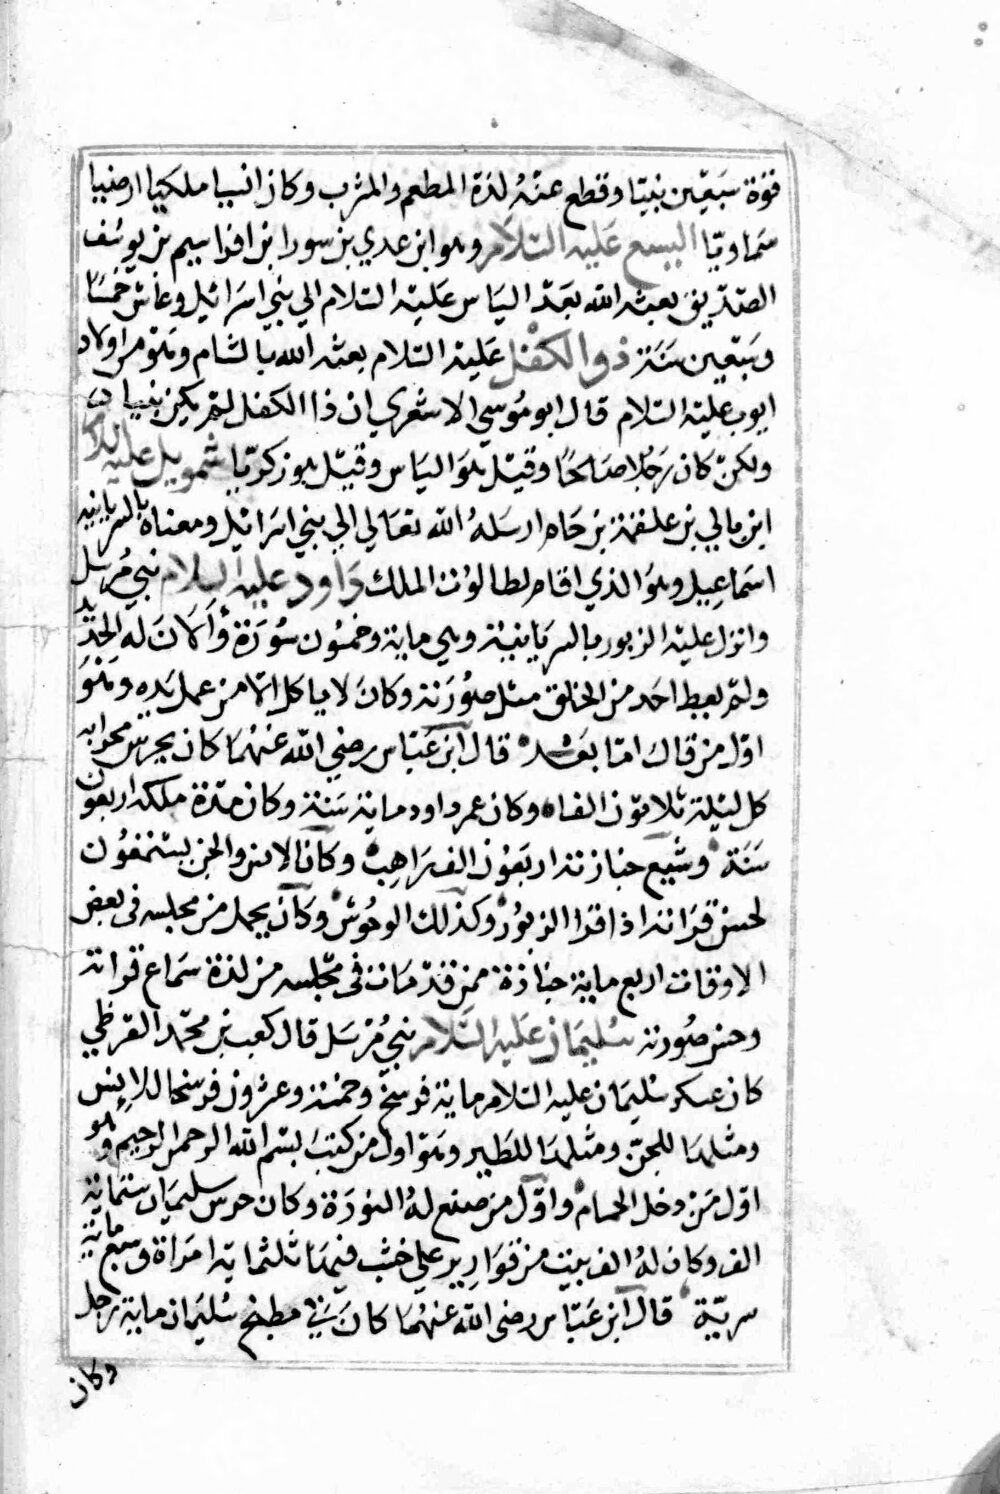 قوة سبعين نبيا وقطع عنه لذة المطعم والمشرب وكان انسيا ملكيا ارضيا
سماويا اليسع عليه السلام وهو ابن عدي بن سورا بن افراسيم بن يوسف
الصديق بعثه الله بعد الياس عليه السلام الي بني اسرائيل وعاش خمسا
وسبعين سنة ذو الكفل عليه السلام بعثه الله بالشام وهو من اولاد
ايوب عليه السلام قال ابو موسي الاشعري ان ذا الكفل لم يكن نبيا
ولكن كان رجلا صالحا وقيل هو الياس وقيل هو زكريا شمويل عليه السلام
ابن بالي بن علقمة بن حام ارسله الله تعالي الي بني اسرائيل ومعناه بالسريانية
اسماعيل وهو الذي اقام لطالوت الملك داود عليه السلام نبي مرسل
وانزل عليه الزبور بالسريانية وهي ماية وخمسون سورة وألان له الحديد
ولم يعط احد من الخلق مثل صورته وكان لا ياكل الا من عمل يده وهو
اول من قال اما بعد قال ابن عباس رضي الله عنهما كان يحرس محرابه
كل ليلة ثلاثون الفا وكان عمر داود ماية سنة وكان مدة ملكه اربعون
سنة وشيع جنازته اربعون الف راهب وكان الانس والجن يستمعون
لحسن قراته اذا قرا الزبور وكذلك الوحوش وكان يحمل من مجلسه في بعض
الاوقات اربع ماية جنازة ممن قد مات في مجلسه من لذة سماع قراته
وحسن صورته سليمان عليه السلام نبي مرسل قال كعب بن محمد القرظي
كان عسكر سليمان عليه السلام ماية فرسخ وخمسة وعشرون فرسخا للانس
ومثلها للجن ومثلها للطير وهو اول من كتب بسم الله الرحمن الرحيم وهو
اول من دخل الحمام واول من صنع له النورة وكان حرس سليمان ستماية
الف وكان له الف بيت من قوارير علي خشب فيها ثلثماية امراة وسبع ماية
سرية قال ابن عباس رضي الله عنهما كان في مطبخ سليمان ماية رجل
وكان